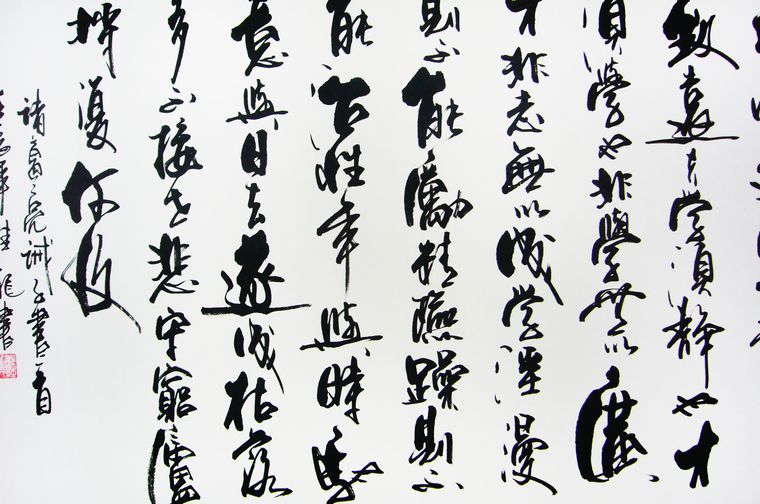 致遠夫學須静也才
須學也非學無以廣
才非志無以成學淫漫
則不能勵精險躁則不
能冶性年與時馳
意與日去遂成枯落
多不接世悲守窮廬
將復何及
諸葛亮誡子書一首
書